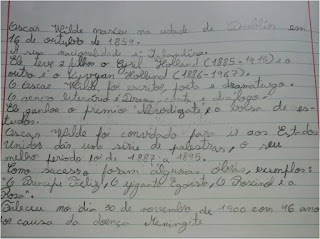 Oscar Wilde nasceu na cidade de Dublin em
16 de outubro de 1854.
A sua nacionalidade é: Irlandesa.
Ele teve 2 filhos o Cyril Holland (1885-1915) e a
outro é o Vyvyan Holland (1886-1967).
O Oscar Wilde foi escritor, poeta e dramaturgo.
O genero literario é: Drama, conto e diálogo.
Ele ganhou o premio "Newdigate" e a bolsa de es-
tudos.
Oscar Wilde foi convidado para ir aos Estados
Unidos dar uma serie de palestras, o seu
melhor periodo foi de 1887 a 1895.
Como sucesso foram algumas obras, exemplos:
O Principe Feliz, O gigante Egoista, O Rouxinol e a
Rosa.
Faleceu no dia 30 de novembro de 1900 com 46 anos
por causa da doença Meningite